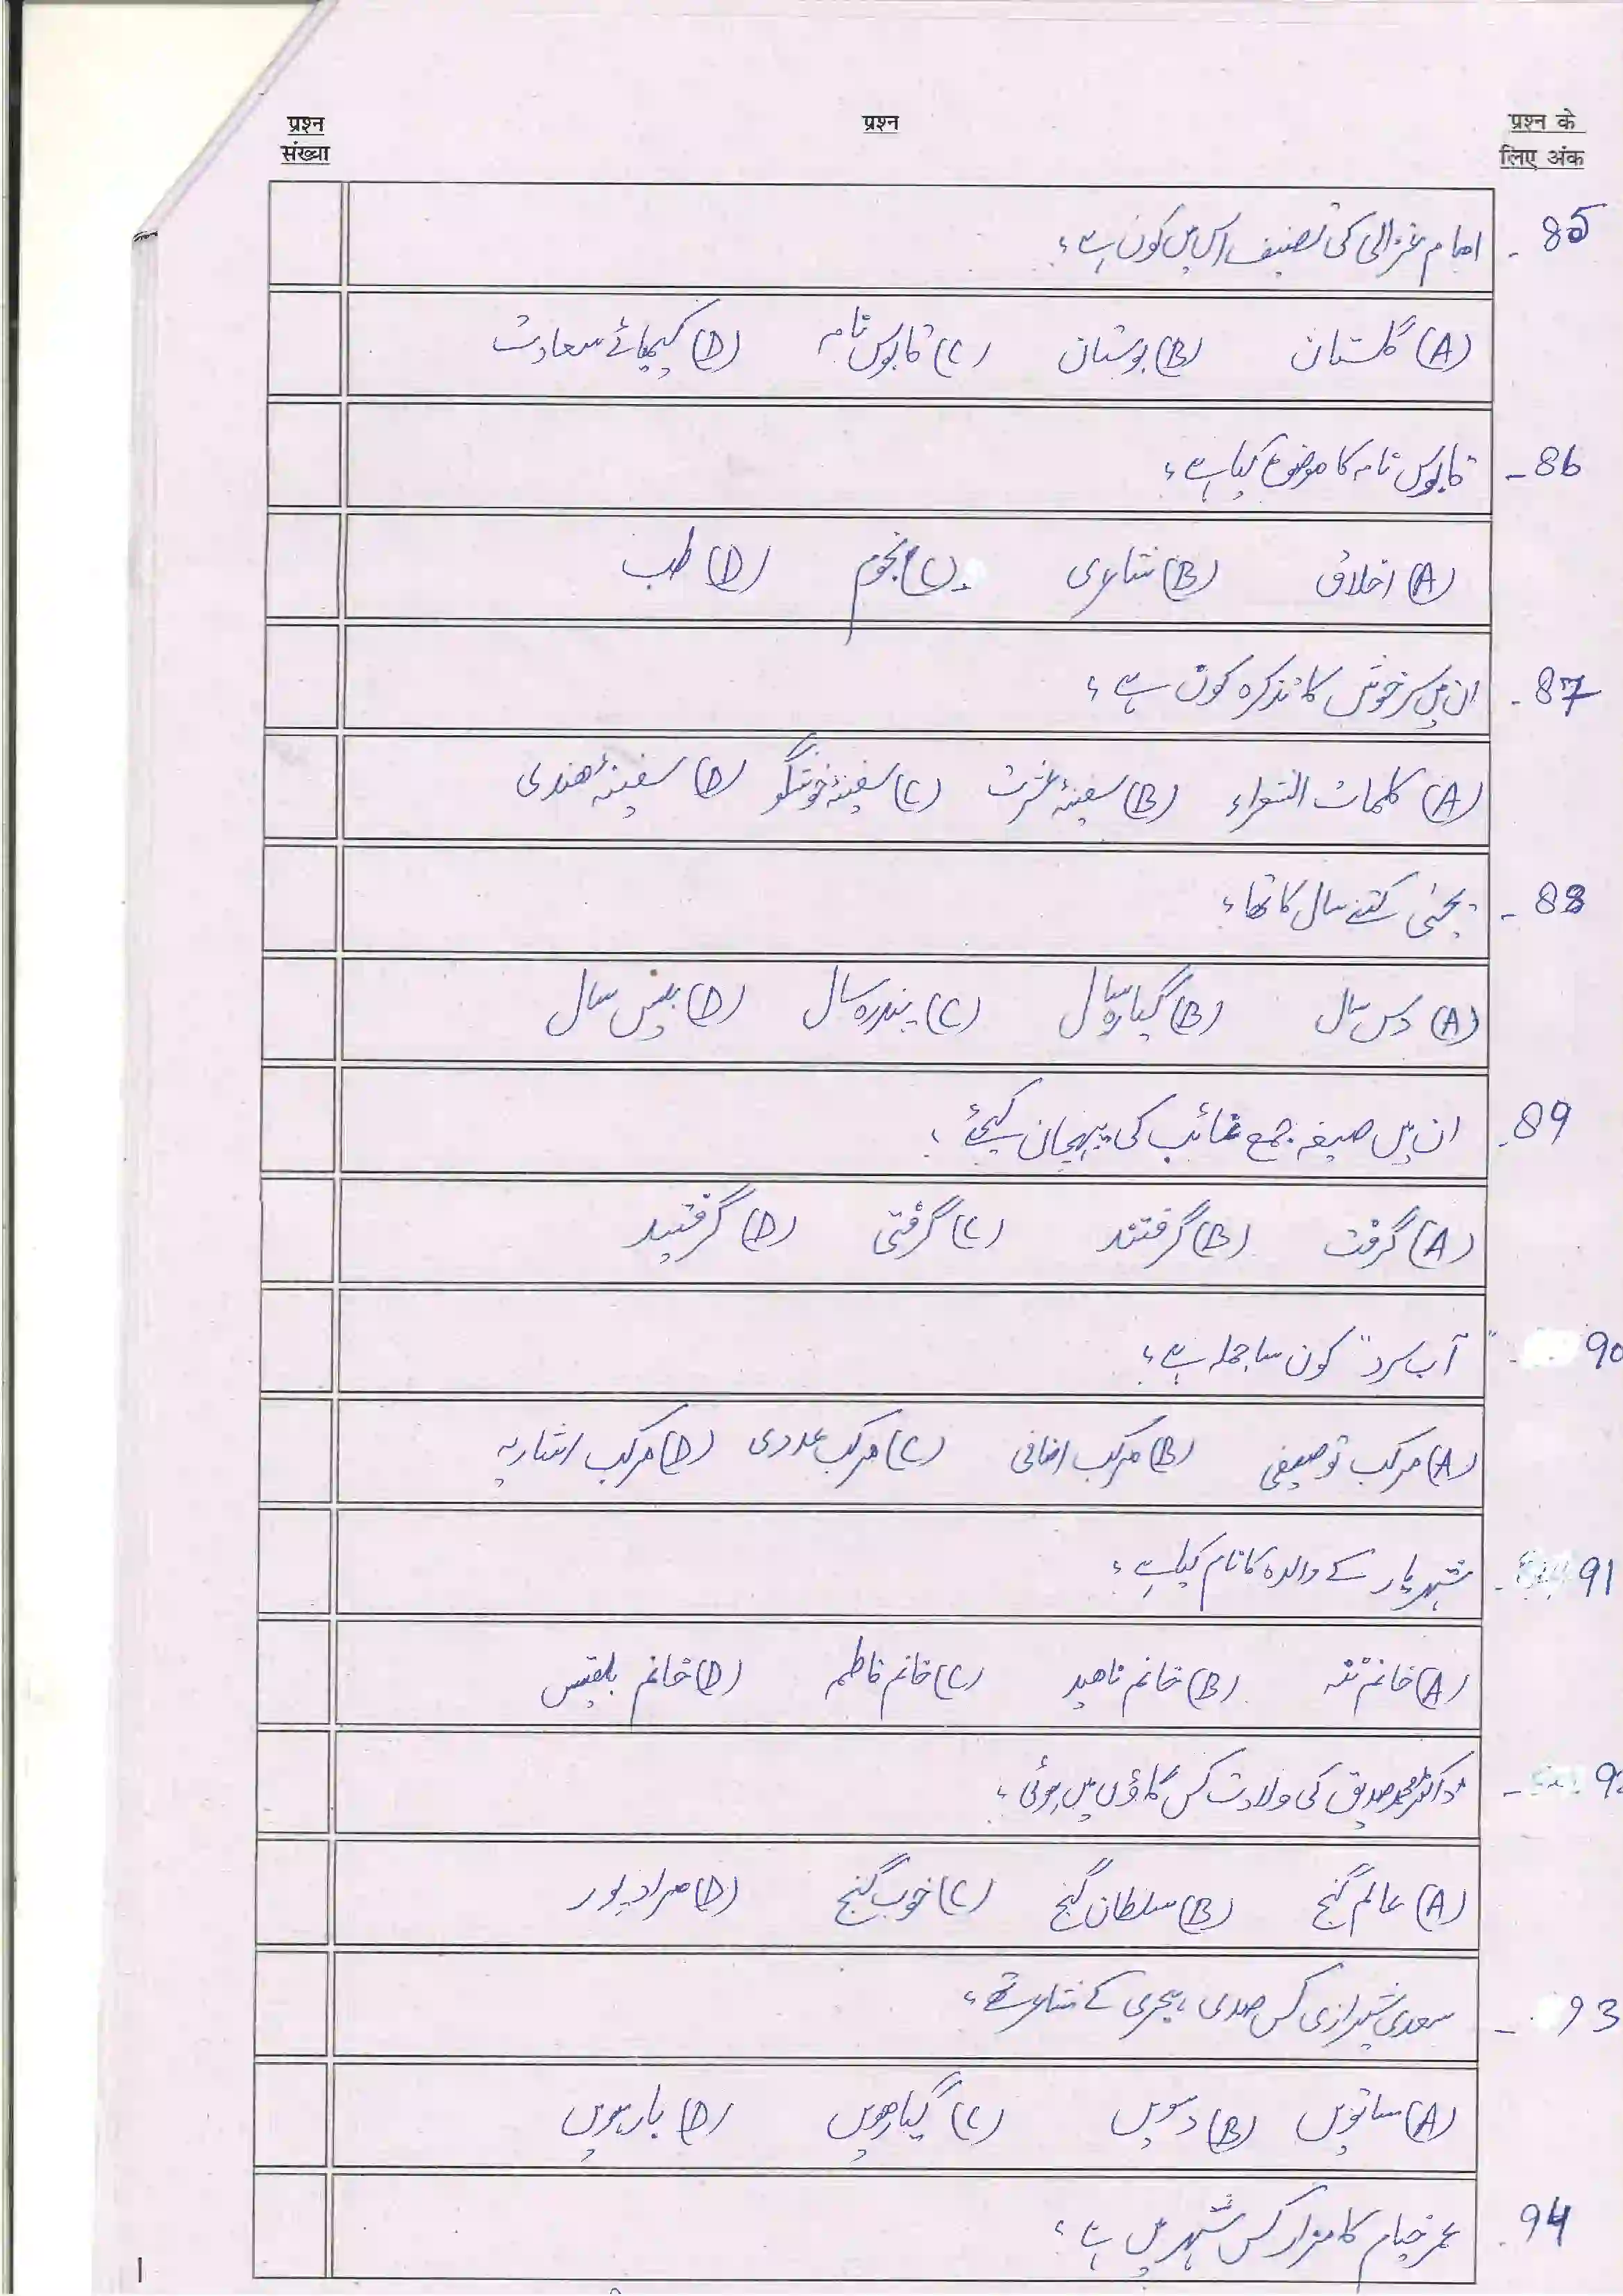 प्रश्न संख्या
प्रश्न
प्रश्न के लिए अंक
85 - امام غزالی کی تصنیف اس میں کون ہے؟
(A) گلستان (B) بوستان (C) قابوس نامہ (D) کیمیائے سعادت
86 - قابوس نامہ کا موضوع کیا ہے؟
(A) اخلاق (B) شاعری (C) نجوم (D) طب
87 - ان میں سرخوش کا تذکرہ کون ہے؟
(A) کلمات الشعراء (B) سفینۂ عشرت (C) سفینۂ خوشگو (D) سفینۂ ھندی
88 - کتنے سال کا تھا؟
(A) دس سال (B) گیارہ سال (C) پندرہ سال (D) بیس سال
89 - ان میں صیغہ جمع غائب کی پہچان کیجئے؛
(A) گرفت (B) گرفتند (C) گرفتی (D) گرفتید
90 - "آب سرد" کون سا جملہ ہے؟
(A) مرکب توصیفی (B) مرکب اضافی (C) مرکب عددی (D) مرکب اشاریہ
91 - شہریار کے والدہ کا نام کیا ہے؟
(A) خانم ننہ (B) خانم ناھید (C) خانم فاطمہ (D) خانم بلقیس
9 - ڈاکٹر محمد صدیق کی ولادت کس گاؤں میں ہوئی؟
(A) عالم گنج (B) سلطان گنج (C) خوب گنج (D) مراد پور
93 - سعدی شیرازی کس صدی ہجری کے شاعر تھے؟
(A) ساتویں (B) دسویں (C) گیارھویں (D) بارہویں
94 - عمر خیام کا مزار کس شہر میں ہے؟